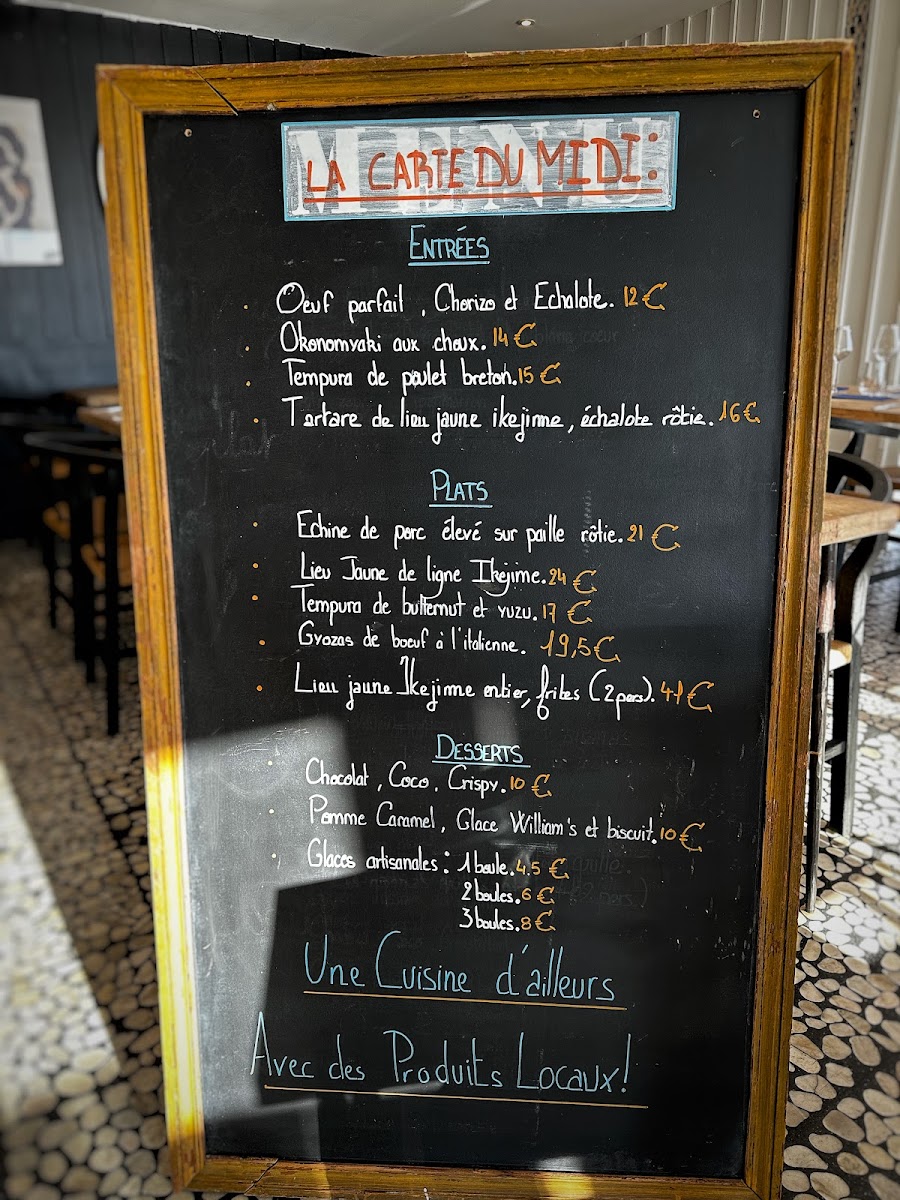 MENU
LA CARTE DU MIDI:
ENTRÉES
Oeuf parfait, Chorizo et Echalote. 12€
Okonomyaki aux choux. 14€
Tempura de poulet breton. 15€
Tartare de lieu jaune ikejime, échalote rôtie. 16€
PLATS
Echine de porc élevé sur paille rôtie. 21€
Lieu Jaune de ligne Ikejime. 24€
Tempura de butternut et yuzu. 17€
Gyozas de boeuf à l'italienne. 19,5€
Lieu jaune Ikejime entier, frites (2 pers). 41€
DESSERTS
Chocolat, Coco, Crispy. 10€
Pomme Caramel, Glace William's et biscuit. 10€
Glaces artisanales: 1 boule. 4.5€
2 boules. 6€
3 boules. 8€
Une Cuisine d'ailleurs
Avec des Produits Locaux!